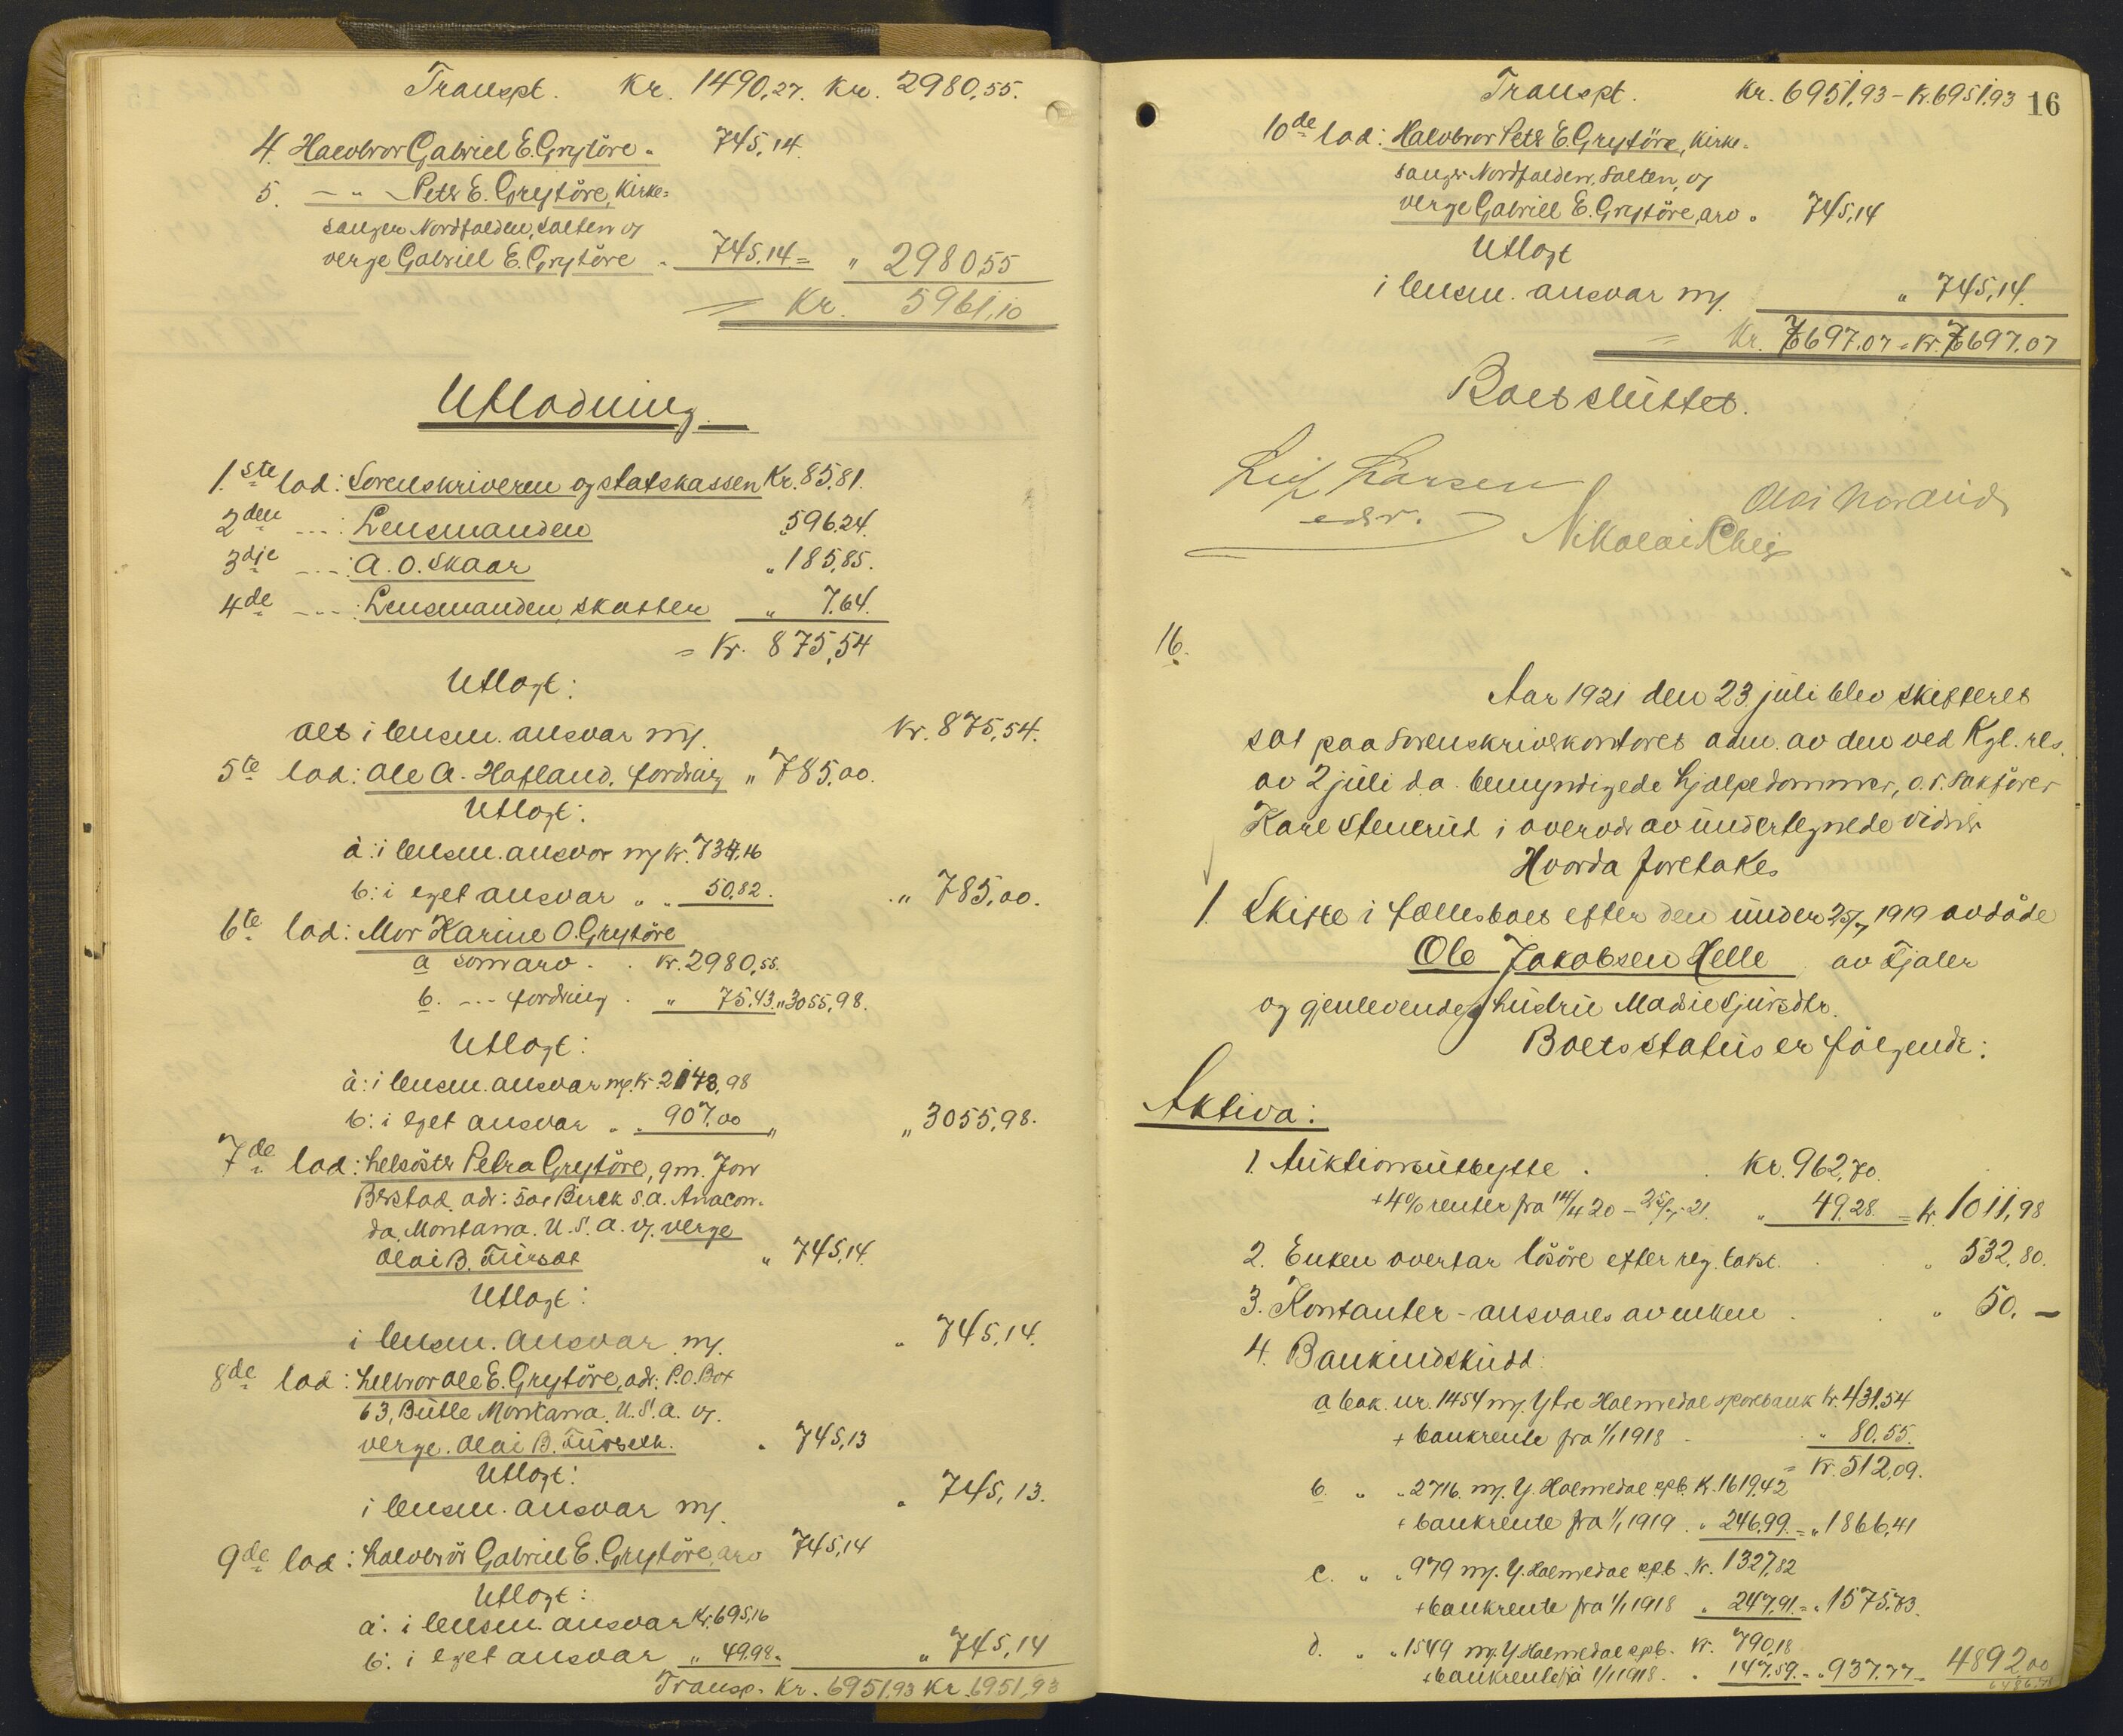 Transpt. Kr. 1490,27. Kr. 2980,55.
4. Halvbror Gabriel E. Grytöre „ 745,14.
5. — „ — Petr E. Grytöre, kirke=
sanger Nordfolden, Salten og
verge Gabriel E. Grytöre „ 745.14 = „ 2980,55
= Kr. 5961,10
Utlodning.
1.ste lod: Sorenskriveren og statskassen Kr. 85,81.
2den -..- : Lensmanden „ 596.24.
3dje -..- : A. O. Skaar „ 185,85.
4de -..- : Lensmanden, skatter „ 7.64.
= Kr. 875,54
Utlagt:
alt i lensm. ansvar m/. Kr. 875,54.
5te lod: Ole A. Hafland, fordring „ 785,00.
Utlagt:
a: i lensm. ansvar m/ kr. 734,16
b: i eget ansvar „ „ 50,82. „ 785,00.
6te lod: Mor Karine O. Grytöre
a som arv . . kr. 2980,55.
b. -..- fordring . „ 75.43. „ 3055,98.
Utlagt:
a: i lensm. ansvar m/. kr. 2148,98
b: i eget ansvar „ „ 907,00 „ „ 3055,98.
7de lod: Helsöster Petra Grytöre, gm. Jon
Berstad, adr: 501 Birch S. A. Anacon-
da, Montana. U. S. A. v/. verge
Olai B. Furset „ 745,14.
Utlagt:
i lensm. ansvar m/. „ 745,14.
8de lod: Helbror Ole E. Grytöre, adr. P. O. Box
63, Butte Montana. U. S. A. v/.
verge. Olai B. Furseth. „ 745,13
Utlagt:
i lensm. ansvar m/. „ 745,13.
9de lod: Halvbror Gabriel E. Grytöre, arv 745,14
Utlagt:
a: i lensm. ansvar Kr. 695,16
b: i eget ansvar „ 49.98. „ 745,14
Transp. Kr. 6951,93 Kr. 6951,93
Transpt. Kr. 6951,93 - Kr. 6951,93 16
10de lod: Halvbror Petr E. Grytöre, kirke-
sanger Nordfolden, Salten, v/
verge Gabriel E. Grytöre, arv „ 745,14
Utlagt
i lensm. ansvar m/. „ 745,14.
= Kr. 7697.07 = Kr. 7697.07
Boet sluttet.
Leif Larsen
edsv.
Nikolai
16.
Aar 1921 den 23 juli blev skifteret
sat paa Sorenskriverkontoret adm. av den ved Kgl. res.
av 2 juli d.a. bemyndigede hjælpedommer, o.r. sakförer
Kare Stenerud i overvær av undertegnede vidner
Hvorda foretakes
1. Skifte i fællesboet efter den under 25/7 1919 avdöde
Ole Jakobsen Helle av Fjaler
og gjenlevende hustru Madie Sjursdtr.
Boets status er fölgende:
Aktiva:
1. Auktionsutbytte . . Kr. 962,70.
+ 4% renter fra 14/4 20 - 25/7 21. „ 49.28. = kr. 1011,98
2. Enken overtar lösöre efter reg. takst. . „ 532,80.
3. Kontanter - ansvares av enken . . „ 50. —
4. Bankindskudd:
a bok nr. 1454 m/. Ytre Holmedal sparebank kr. 431.54
+ bankrente fra 1/1 1918 . . „ 80.55.
= Kr. 512,09.
b. „ „ 2716. m/. Y. Holmedal spb. K. 1619,42
+ bankrente fra 1/1 1919 . „ 246,99. = „ 1866,41
c. „ „ 979 m/. Y. Holmedal spb. kr. 1327,82
+ bankrente fra 1/1 1918 „ 247,91. = „ 1575.73.
d. „ „ 1549 m/. Y. Holmedal spb. kr. 790,18
+ bankrente fra 1/1 1918. „ 147.59. = „ 937.77 = 4892,00